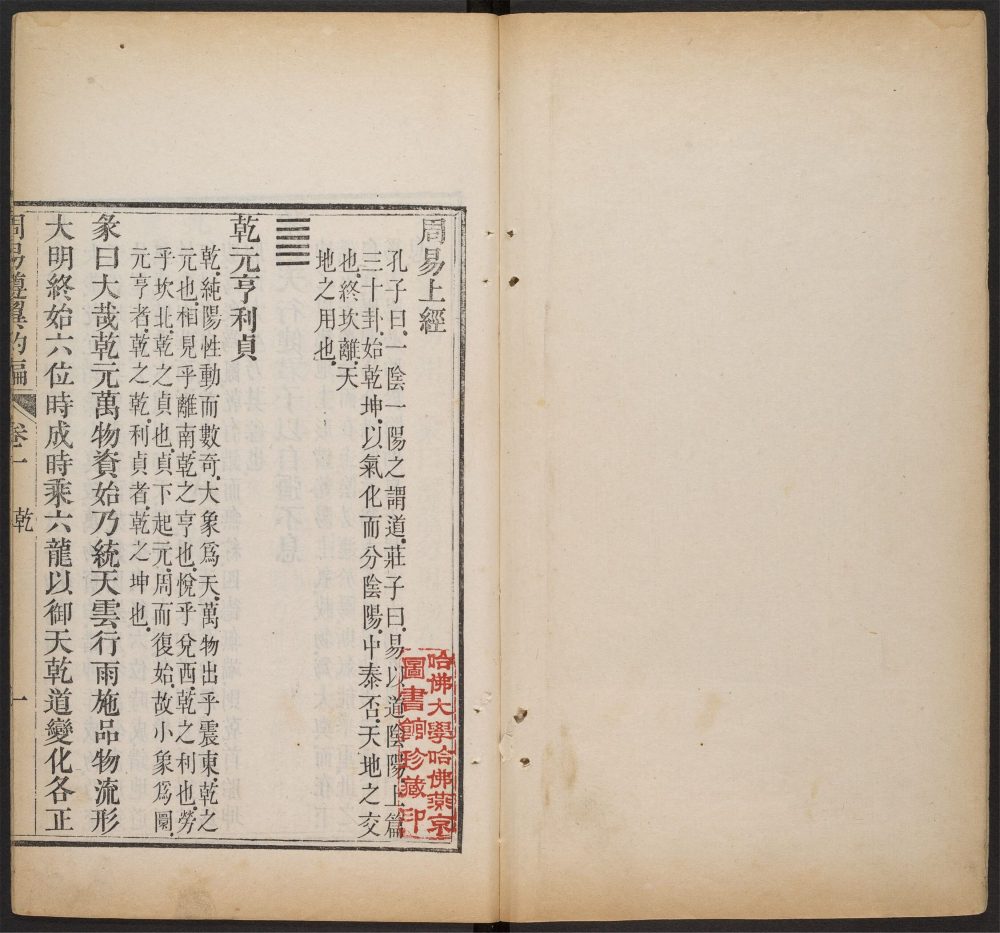 周易上經
孔子曰一陰一陽之謂道莊子曰易以道陰陽上篇
三十卦始乾坤以氣化而分陰陽中泰否天地之交
也終坎離天
地之用也
䷀
乾元亨利貞
乾純陽性動而數奇大象爲天萬物出乎震東乾之
元也相見乎離南乾之亨也悅乎兌西乾之利也勞
乎坎北乾之貞也貞下起元周而復始故小象爲圜
元亨者乾之乾利貞者乾之坤也
彖曰大哉乾元萬物資始乃統天雲行雨施品物流形
大明終始六位時成時乘六龍以御天乾道變化各正
周易遵翼約編 卷一 乾 一
哈佛大學哈佛燕京
圖書館珍藏印